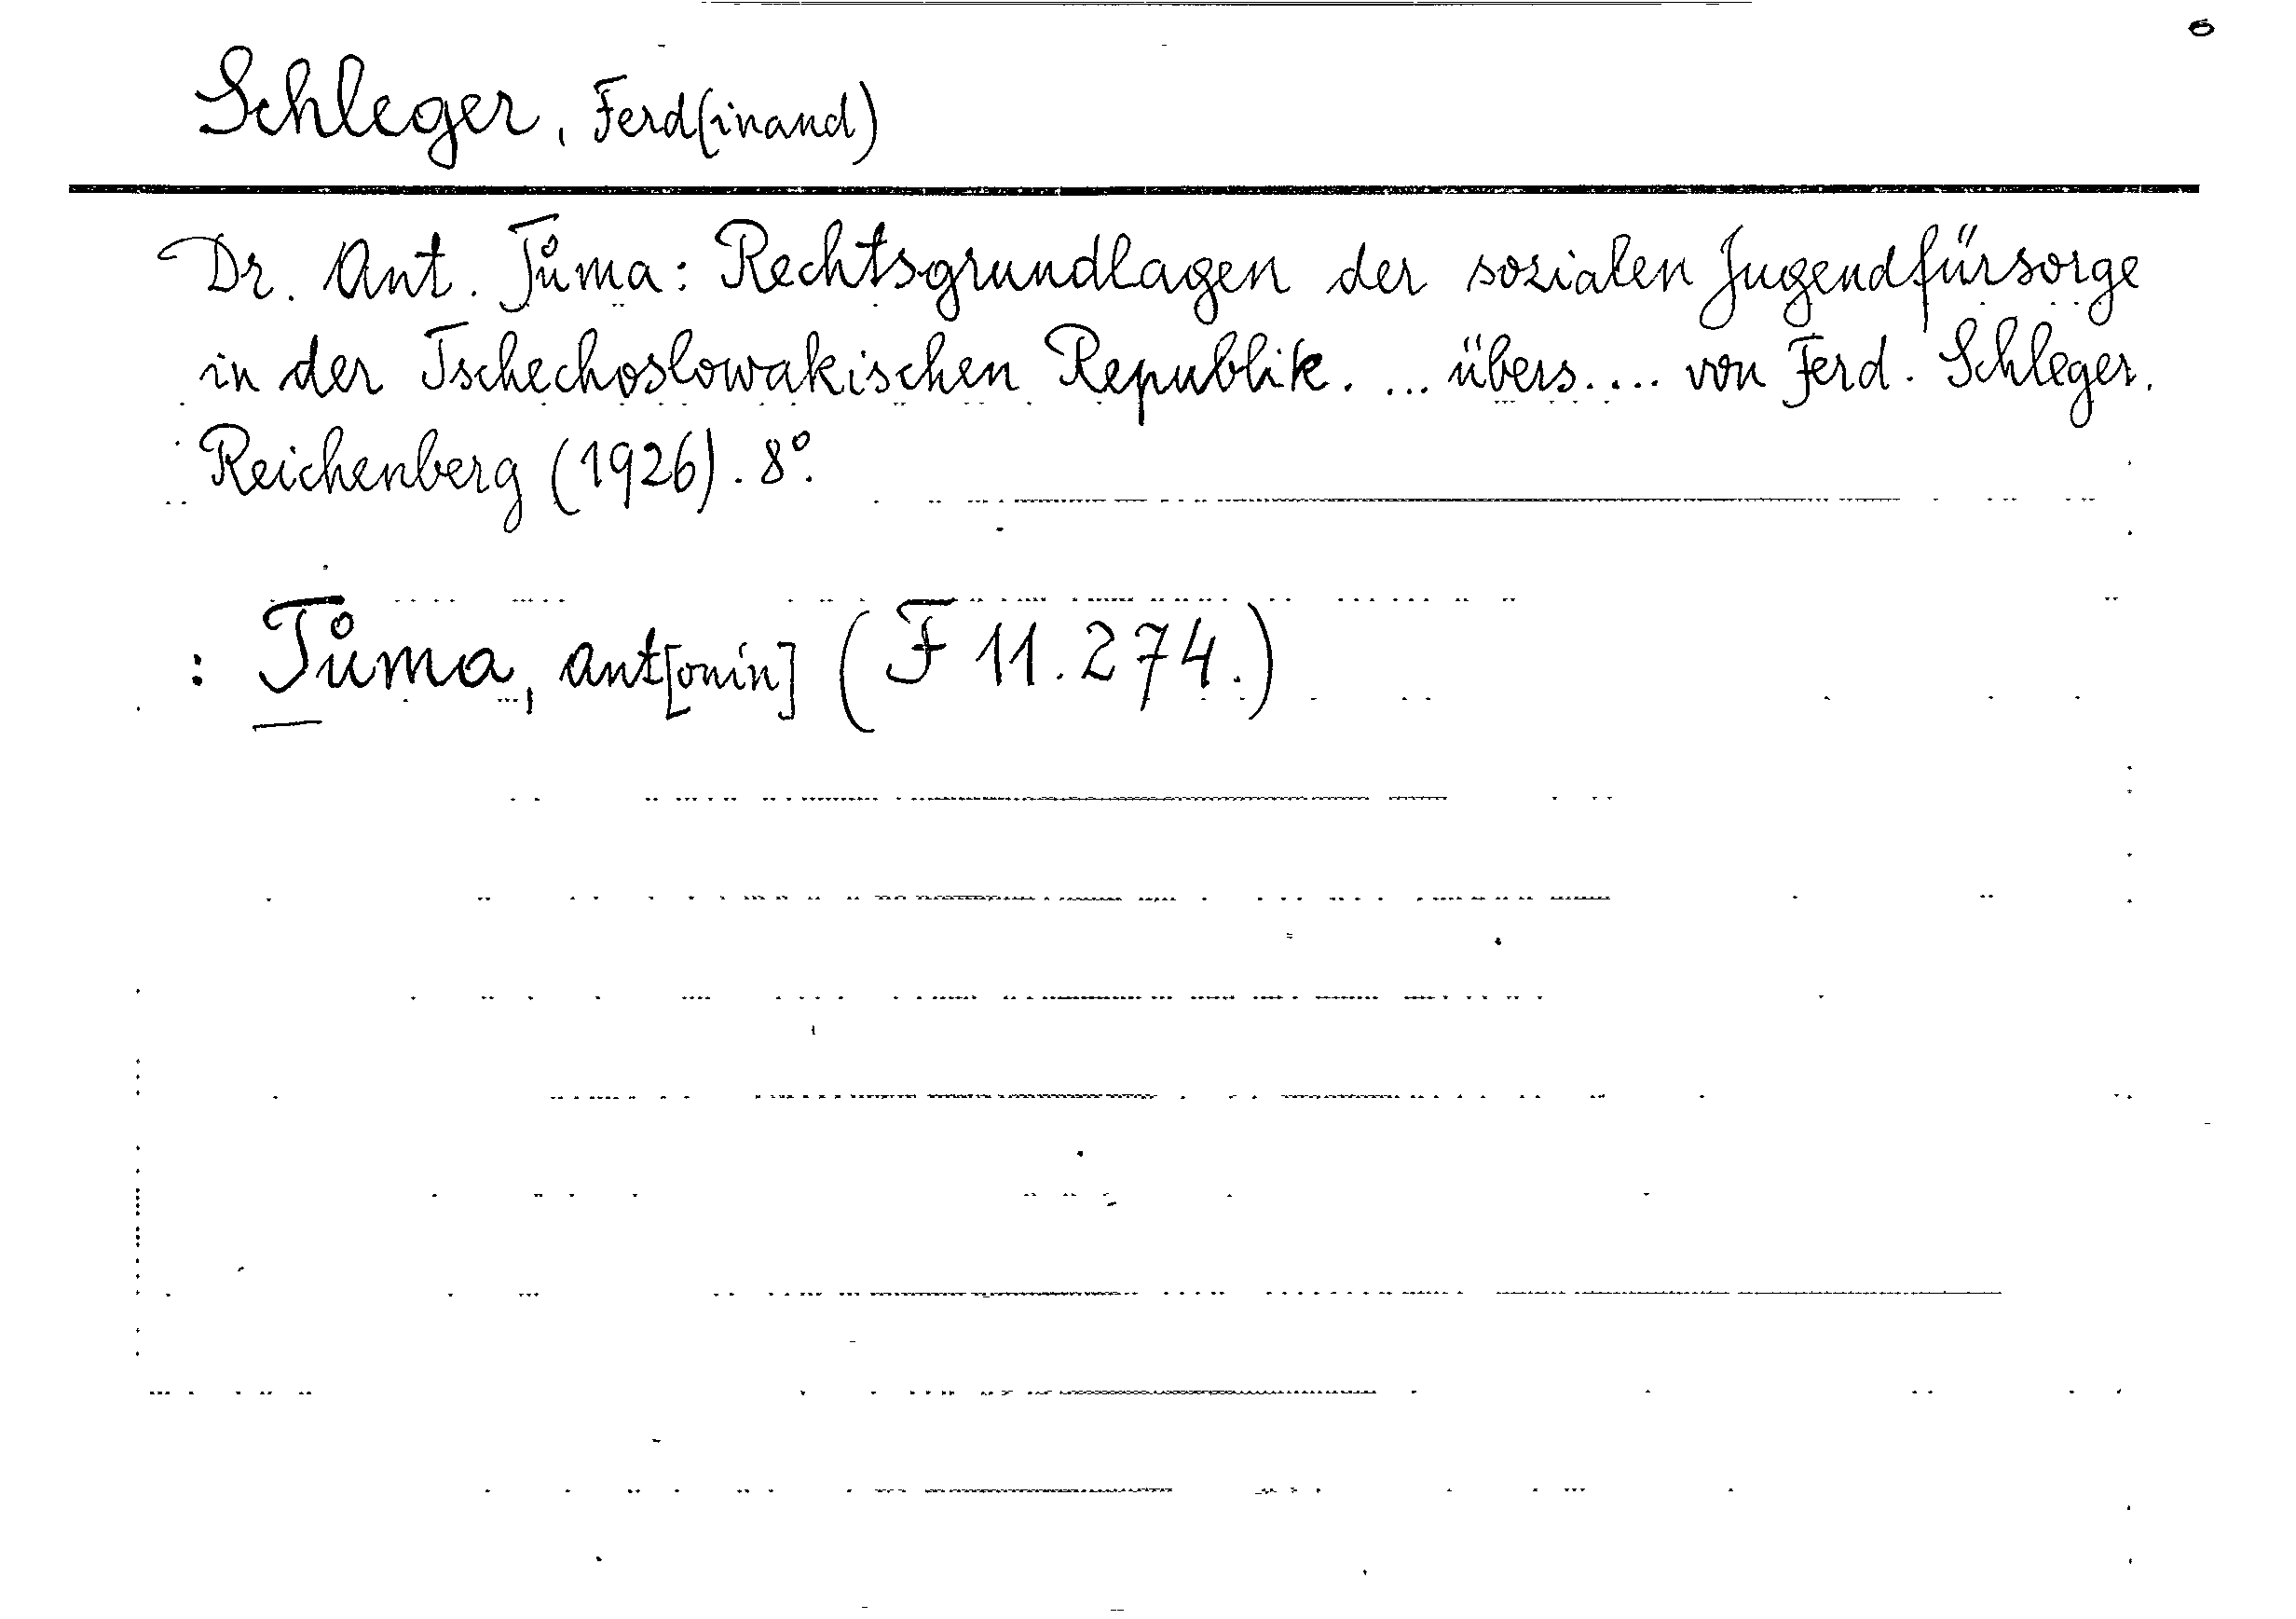 Schleger, Ferd(inand)
Dr. Ant. Tůma: Rechtsgrundlagen der sozialen Jugendfürsorge
in der Tschechoslowakischen Republik. ... übers.... von Ferd. Schleger.
Reichenberg (1926). 8°.
: Tůma, Ant[onín] (F 11.274.)